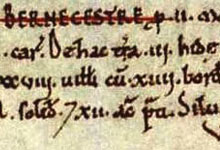 BERNECESTRE, p. ii.
car̃. De hac t̃ra. iii. hidę
xxviii. uilli cũ. xiiii. bord
solid. 7 xii. ac̃ p̃ti. Silu